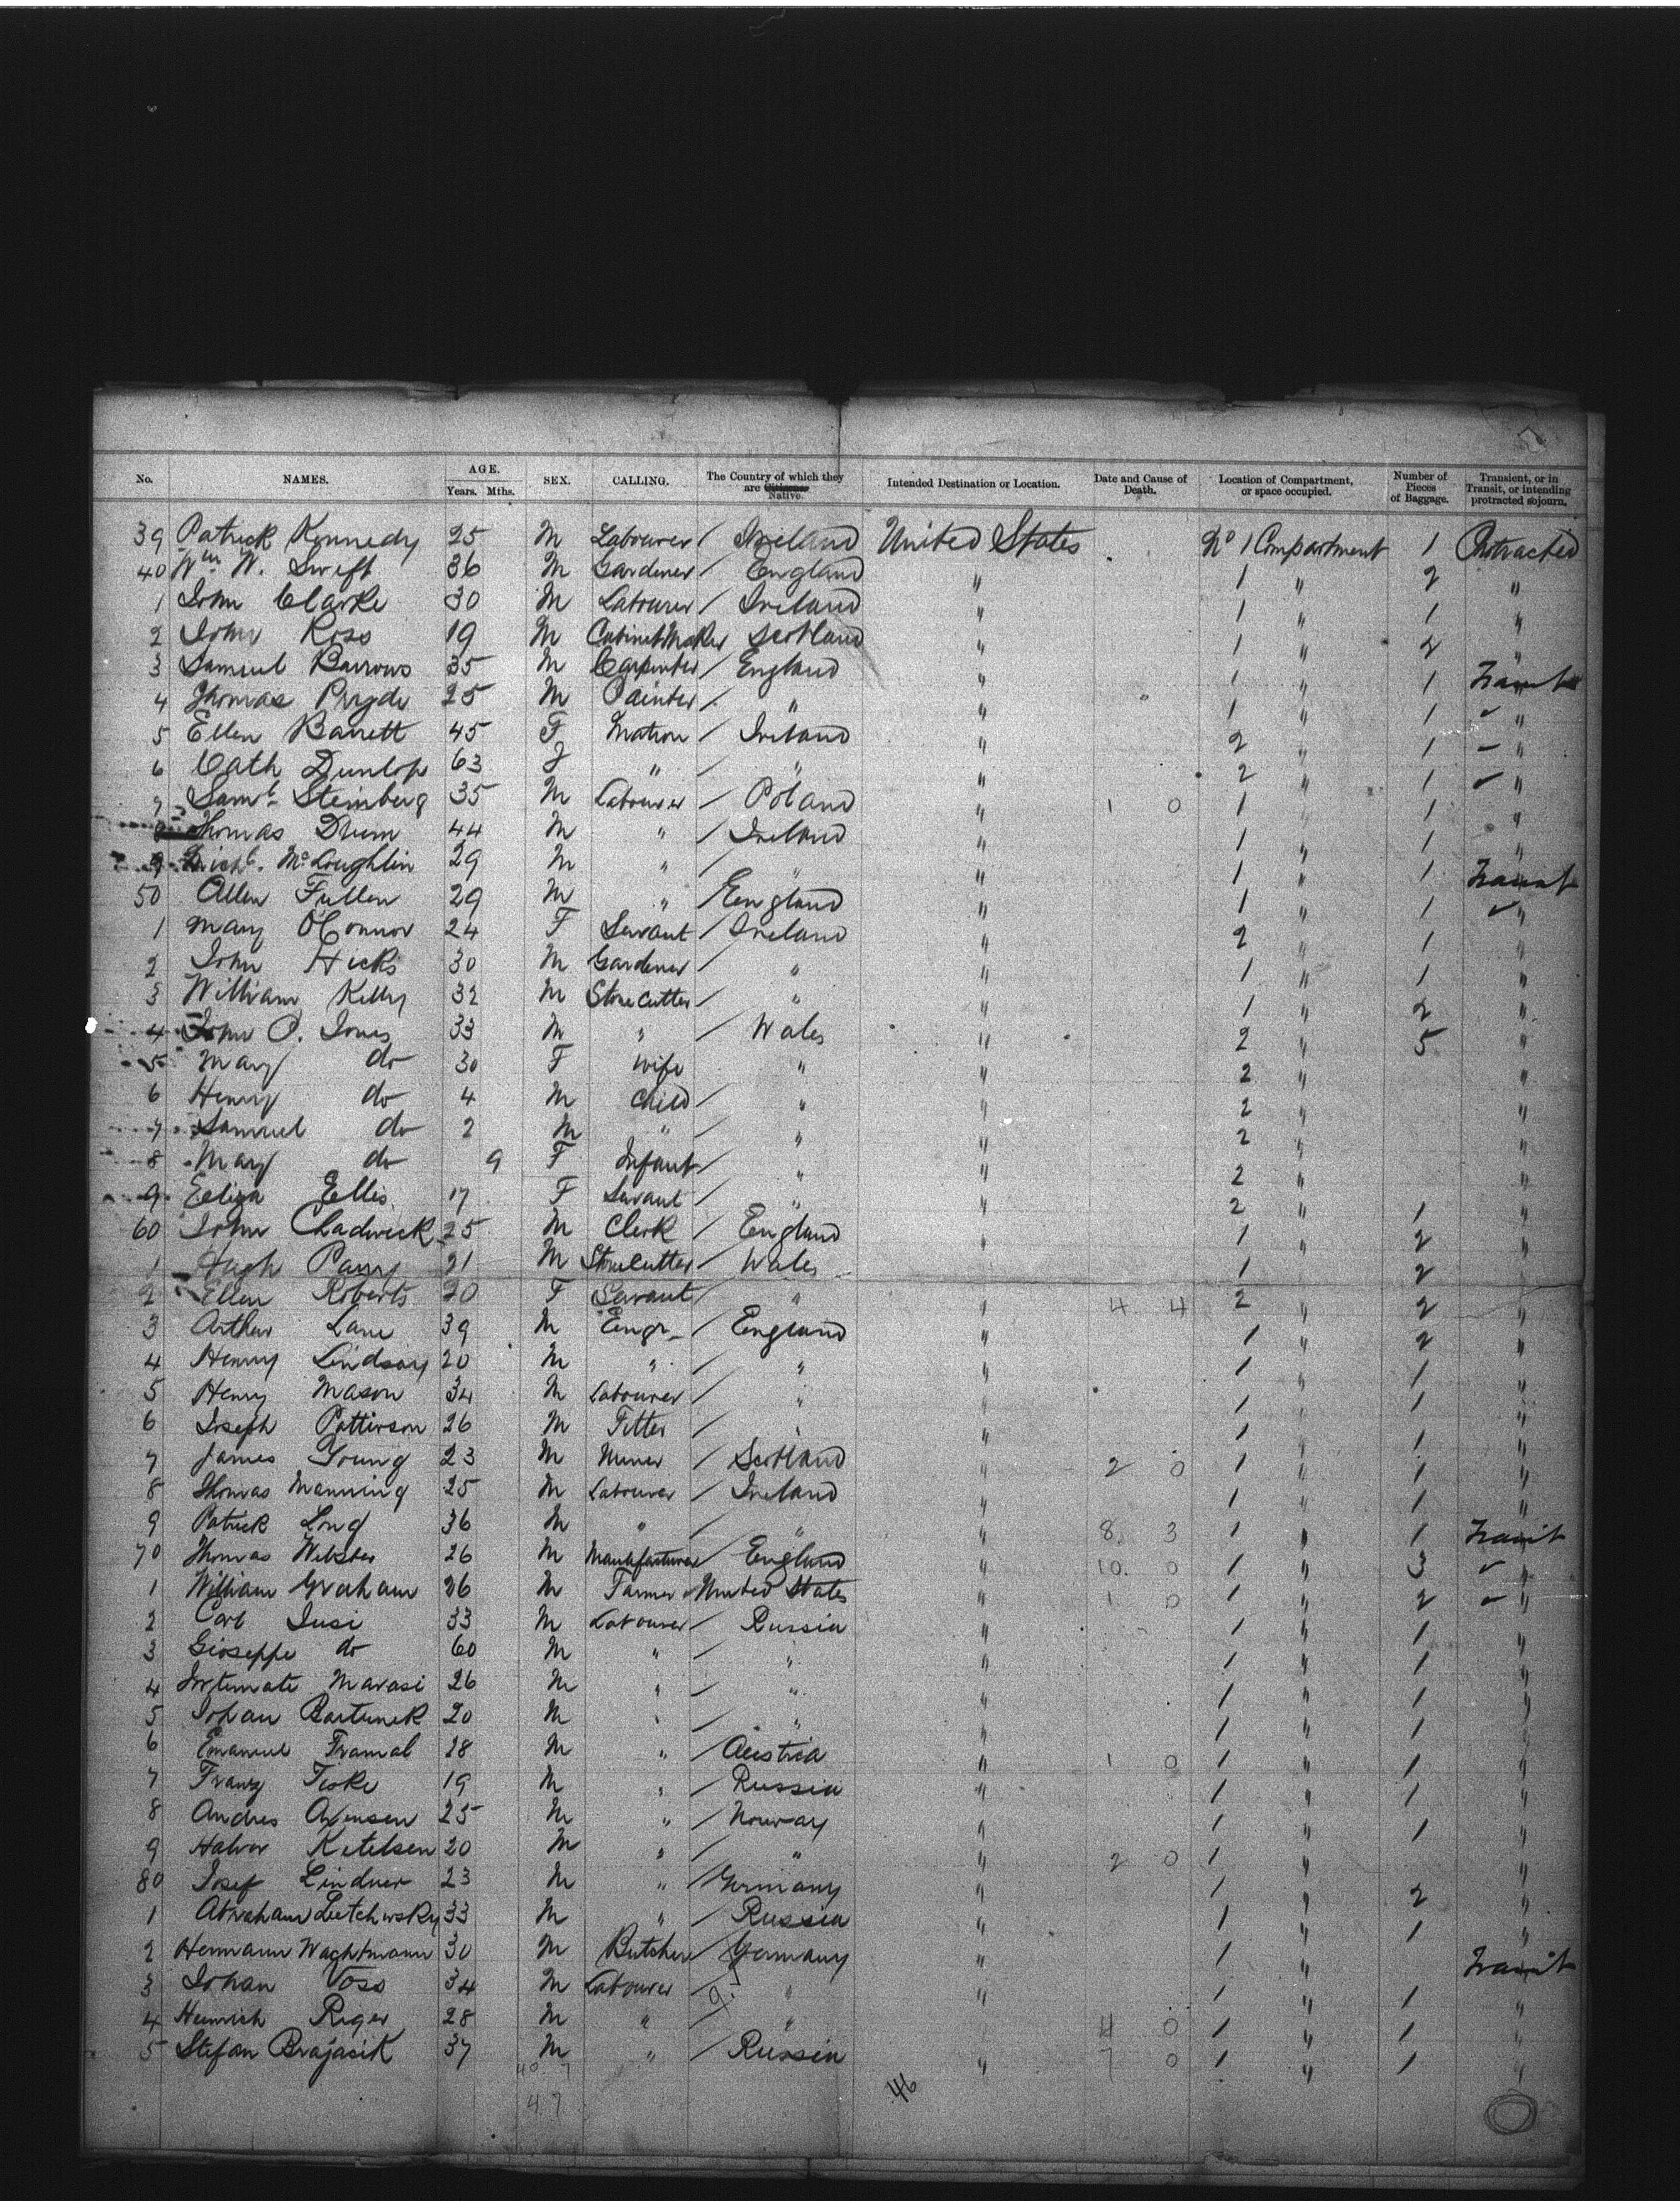 No. NAMES. AGE. Years. Mths. SEX. CALLING. The Country of which they are Citizens Native. Intended Destination or Location. Date and Cause of Death. Location of Compartment, or space occupied. Number of Pieces of Baggage. Transient, or in Transit, or intending protracted sojourn.
39 Patrick Kennedy 25 M Labourer / Ireland United States No 1 Compartment 1 Protracted
40 Wm W. Swift 36 M Gardener / England " 1 " 2 "
1 John Clarke 30 M Labourer / Ireland " 1 " 1 "
2 John Ross 19 M Cabinet Maker Scotland " 1 " 2 "
3 Samuel Barrows 35 M Carpenter / England " 1 " 1 Transit
4 Thomas Prgde 25 M Painter / " " 1 " 1 "
5 Ellen Barrett 45 F Matron / Ireland " 2 " 1 "
6 Cath Dunlop 63 F " / " " 2 " 1 "
7 Saml Steinberg 35 M Labourer / Poland " 1 0 1 " 1 "
8 Thomas Drum 44 M " / Ireland " 1 " 1 "
9 Mich. McLoughlin 29 M " " " 1 " 1 Transit
50 Allen Fullen 29 M " / England " 1 " 1 "
1 Mary O'Connor 24 F Servant / Ireland " 2 " 1 "
2 John Hicks 30 M Gardener / " " 1 " 1 "
3 William Kelly 32 M Stonecutter / " " 1 " 2 "
4 John P. Jones 33 M " / Wales " 2 " 5 "
5 Mary do 30 F Wife " " 2 " "
6 Henry do 4 M Child / " " 2 " "
7 Samuel do 2 M " / " " 2 " "
8 Mary do 9 F Infant / " " 2 " "
9 Eeliza Ellis 17 F Servant / " " 2 " 1 "
60 John Chadwick 25 M Clerk / England " 1 " 2 "
1 Hugh Parry 21 M Stonecutter / Wales 1 2
2 Ellen Roberts 20 F Servant / " " 4 4 2 " 2 "
3 Arthur Lane 39 M Engr / England " 1 " 2 "
4 Henry Lindsay 20 M " / " " 1 " 1 "
5 Henry Mason 34 M Labourer / " " 1 " 1 "
6 Joseph Patterson 26 M Fitter / " " 1 " 1 "
7 James Young 23 M Miner / Scotland " 2 0 1 " 1 "
8 Thomas Manning 25 M Labourer / Ireland " 1 " 1 "
9 Patrick Long 36 M " / " " 8 3 1 " 1 Transit
70 Thomas Webster 26 M Manufacturer / England " 10 0 1 " 3 "
1 William Graham 26 M Farmer United States " 1 0 1 " 2 "
2 Carl Susi 33 M Labourer / Russia " 1 " 1 "
3 Gioseppe do 60 M " / " " 1 " 1 "
4 Fortunate Marasi 26 M " / " " 1 " 1 "
5 Johan Bartunek 20 M " / " " 1 " 1 "
6 Emanuel Framal 28 M " / Austria " 1 0 1 " 1 "
7 Franz Tiske 19 M " / Russia " 1 " 1 "
8 Andres Axensen 25 M " / Norway " 1 " 1 "
9 Halvor Ketelsen 20 M " / " " 2 0 1 " "
80 Josef Lindner 23 M " / Germany " 1 " 2 "
1 Abraham Lutchwsky 33 M " / Russia " 1 " 1 "
2 Hermann Waghtmann 30 M Butcher / Germany " 1 " Transit
3 Johan Voss 34 M Labourer / " " 1 " 1 "
4 Heinrich Reger 28 M " / " 4 0 1 " 1 "
5 Stefan Brajasik 37 M " / Russia " 7 0 1 " 1 "
47 46